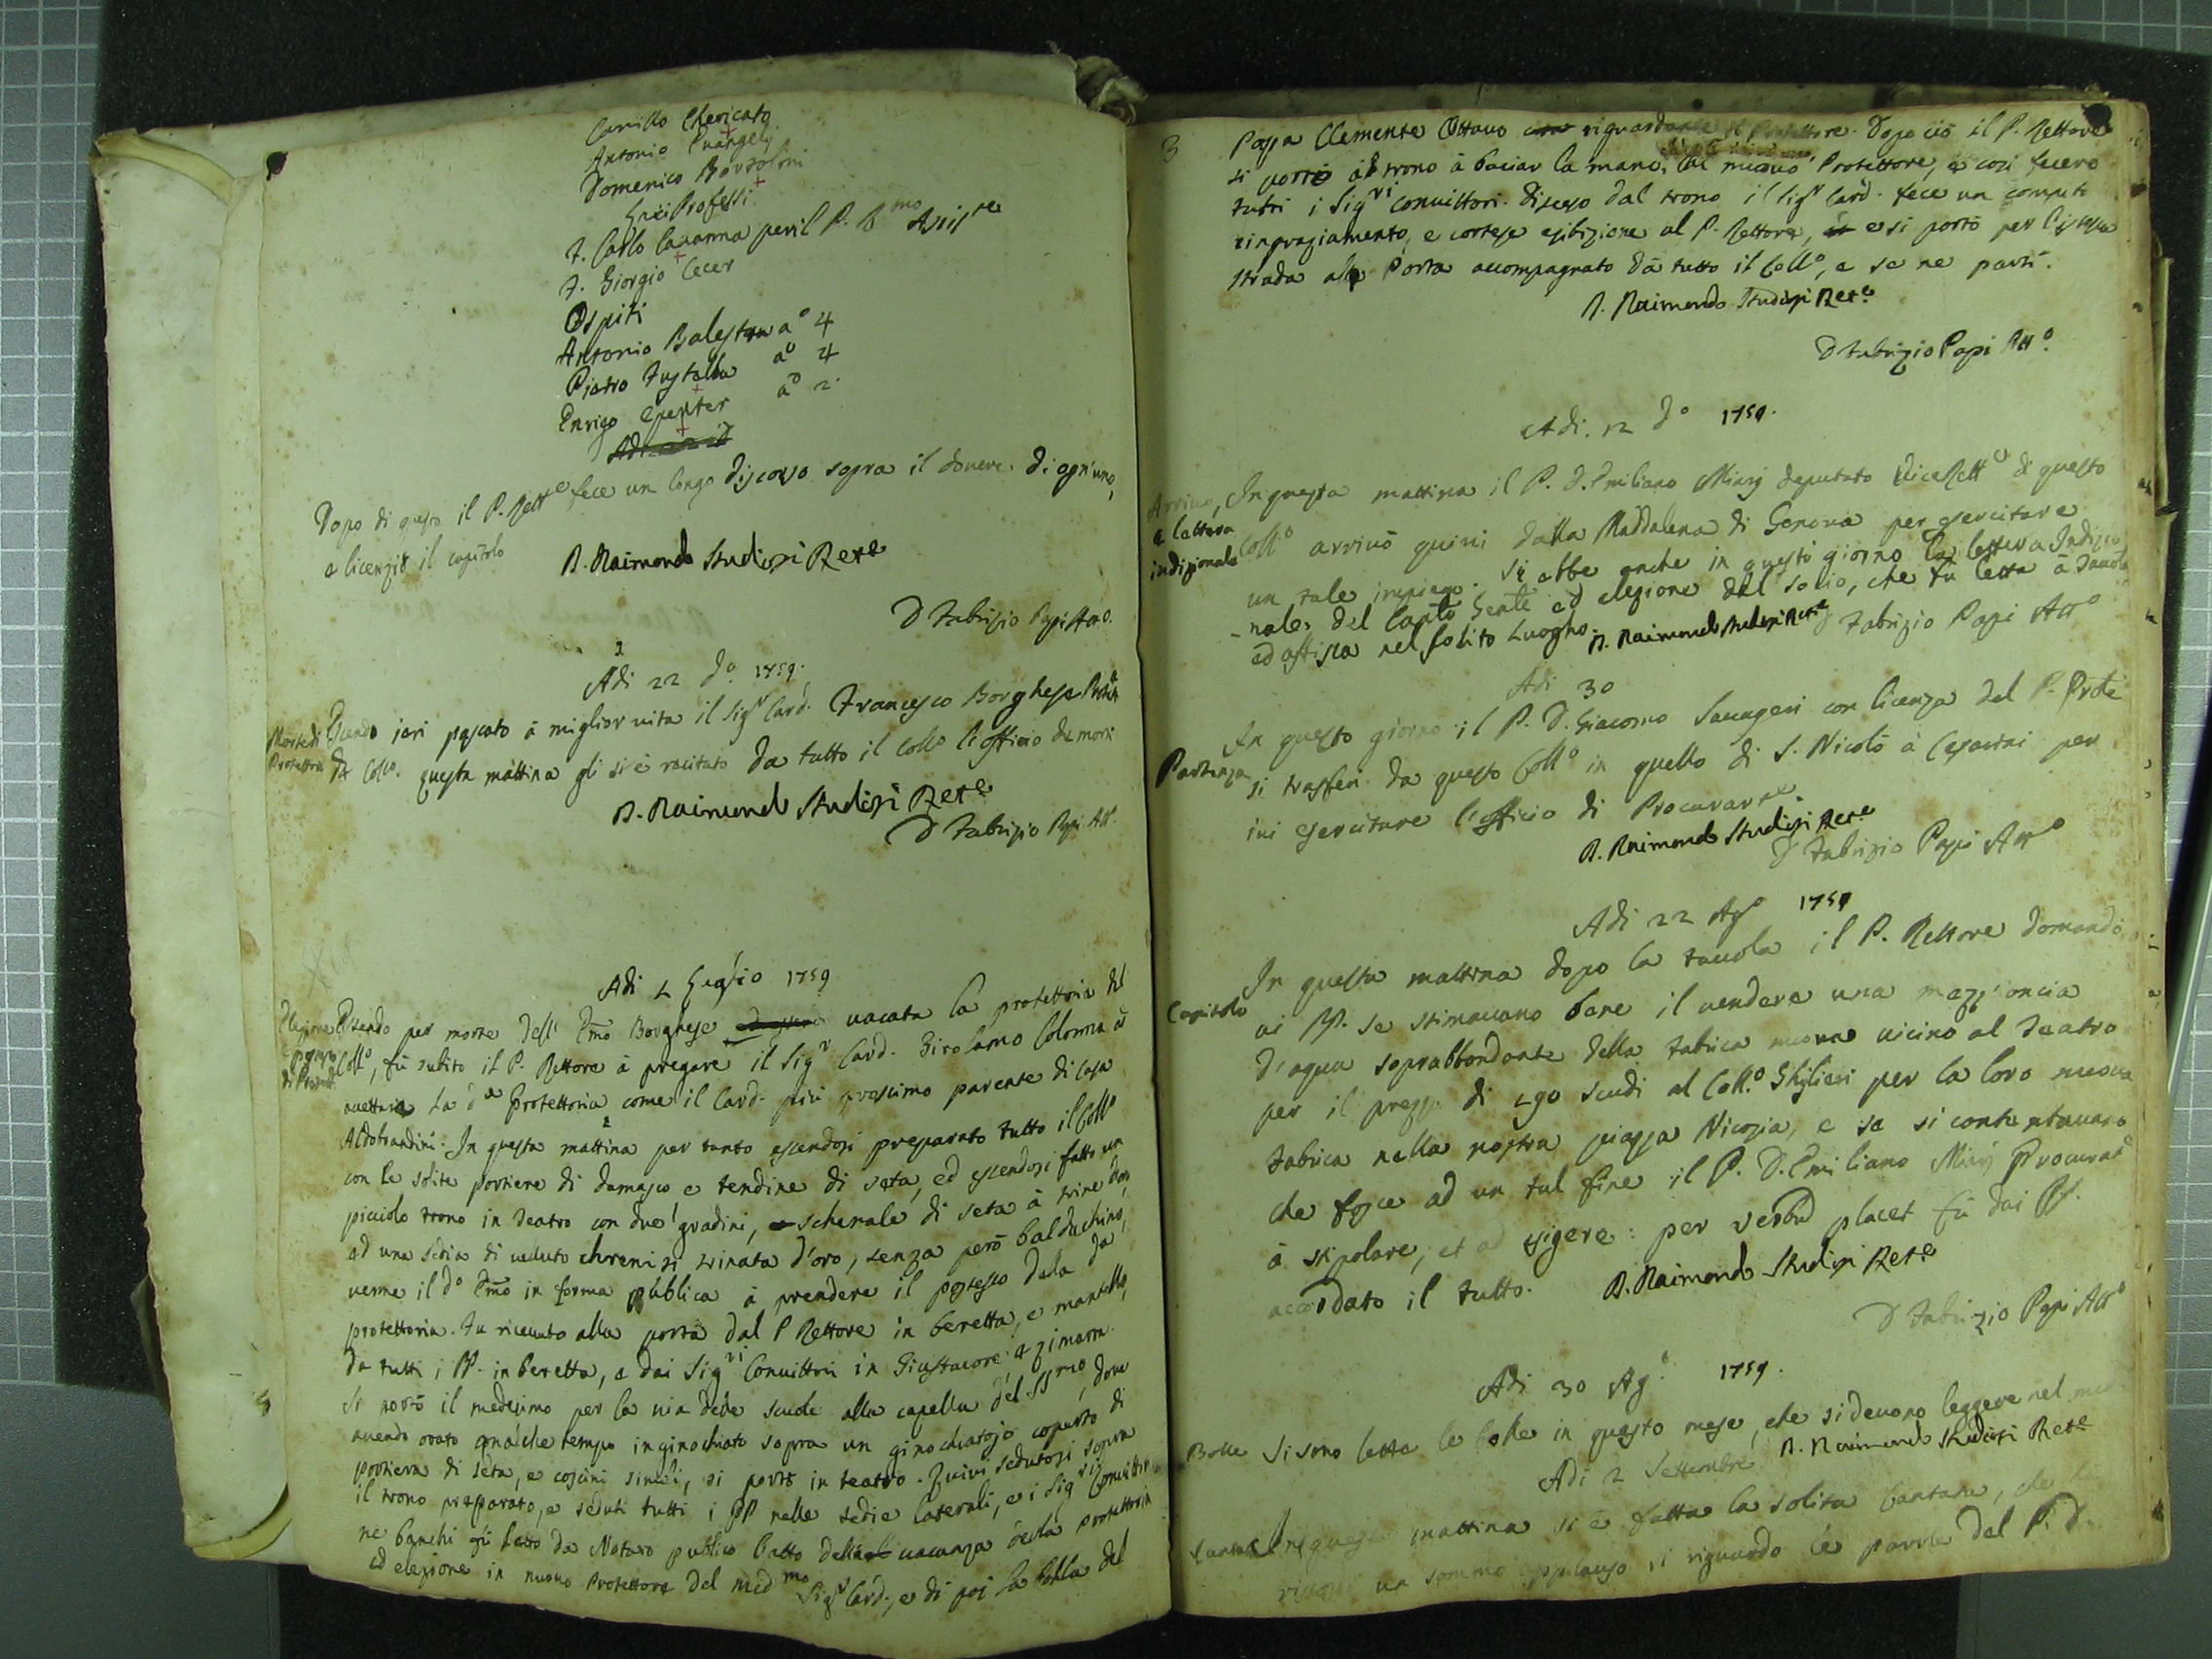 Camillo Chericato
Antonio Evangelj
Domenico Borzolini
Laici Professi
F. Carlo Cauanna per il P. R.mo Assis.te
F. Giorgio Cecer
Ospiti
Antonio Balestra a.o 4
Pietro Fustalla a.o 4
Enrigo Epenter a.o 2
Dopo di questo il P. Rett.e fece un longo discorso sopra il douere di ogn'uno,
e licenziò il capitolo
D. Raimondo Studiosi Ret.e
D Fabrizio Papi Att.o
Adi 22 d.o 1759.
Morte di Protettore
Essendo jeri passato à miglior uita il Sig.r Card. Francesco Borghese
di Coll.o questa mattina gli si è recitato da tutto il Coll.o l'officio de morti
D. Raimondo Studiosi Ret.e
D Fabrizio Papi Att.o
Adi 4 Luglio 1759
Elezione e possesso di Protett.
Essendo per morte dell' Emo Borghese uacata la protettoria del
Coll.o, fù subito il P. Rettore à pregare il Sig.r Card. Girolamo Colonna à
accettare la d.a Protettoria come il Card. più prossimo parente di casa
Aldobrandini. In questa mattina per tanto essendosi preparato tutto il Coll.o
con le solite portiere di damasco e tendine di seta, ed essendosi fatto un
picciolo trono in teatro con due gradini, schenale di seta à trine d'oro,
ed una sedia di uelluto chremisi trinata d'oro, senza però balduchino,
uenne il d.o Emo in forma publica à prendere il possesso dela d.a
protettoria. Fu riceuuto alla porta dal P Rettore in beretta, e mantello,
da tutti i PP. in beretta, e dai Sig.ri Conuittori in Giustacore, e zimarra.
Si portò il medesimo per la uia dele scuole alla capella del SS.mo, doue
auendo orato qualche tempo inginochiato sopra un ginochiatojo coperto di
portiera di seta, e coscini simili, si portò in teatro. Quiui sedutosi sopra
il trono preparato, e seduti tutti i PP nelle sedie laterali, e i Sig.ri Conuittori
ne banchi fù letto da Notaro publico l'atto della uacanza della protettoria
ed elezione in nuouo Protettore del med.mo Sig.r Card., e di poi la bolla del
3
Papa Clemente Ottauo riguardante il Protettore. Dopo ciò il P. Rettore
si portò al trono à baciar la mano al nuouo Protettore, e così fecero
tutti i Sig.ri Conuittori. Disceso dal trono il Sig.r Card. fece un compito
ringraziamento, e cortese esibizione al P. Rettore, e si portò per l'istessa
strada alla Porta accompagnato da tutto il Coll.o, e se ne partì.
D. Raimondo Studiosi Ret.e
D Fabrizio Papi Att.o
Adi. 12 d.o 1759.
Arriuo, e lettera indizionale
In questa mattina il P. D. Emiliano Miasj deputato ViceRett.e di questo
Coll.o arriuò quiui dalla Maddalena di Genoua per esercitare
un tale impiego. Si ebbe anche in questo giorno la lettera Indizio
-nale del Capto Genle ed elezione del socio, che fù letta à tauola
ed affissa nel solito Luogho. D. Raimondo Studiosi Ret.e D Fabrizio Papi Att.o
Adi 30
Partenza
In questo giorno il P. D. Giacomo Sauageri con licenza del P. Prole
si trasferì da questo Coll.o in quello di S. Nicolò à Cesarini per
iui esercitare l'officio di Procurar.re
D. Raimondo Studiosi Ret.e
D Fabrizio Papi Att.o
Adi 22 Ag.o 1759
Capitolo
In questa mattina dopo la tauola il P. Rettore domandò
ai PP. se stimauano bene il uendere una mezz'oncia
d'aqua soprabbondante della fabrica nuoua uicino al teatro
per il prezzo di 290 scudi al Coll.o Ghislieri per la loro nuoua
fabrica nella nostra piazza Nicosia, e se si contentauano
che fosse ad un tal fine il P. D. Emiliano Miasj Procurat.e
à stipolare, et ad esigere: per verbū placet fù dai PP.
accordato il tutto. D. Raimondo Studiosi Ret.e
D Fabrizio Papi Att.o
Adi 30 Ag.o 1759.
Bolle
Si sono lette le bolle in questo mese, che si deuono leggere nel
D. Raimondo Studiosi Ret.e
Adi 2 Settembre
Cantata
In questa mattina si è fatta la solita Cantata, che
un sommo applauso si riguardo le parole del P. D.